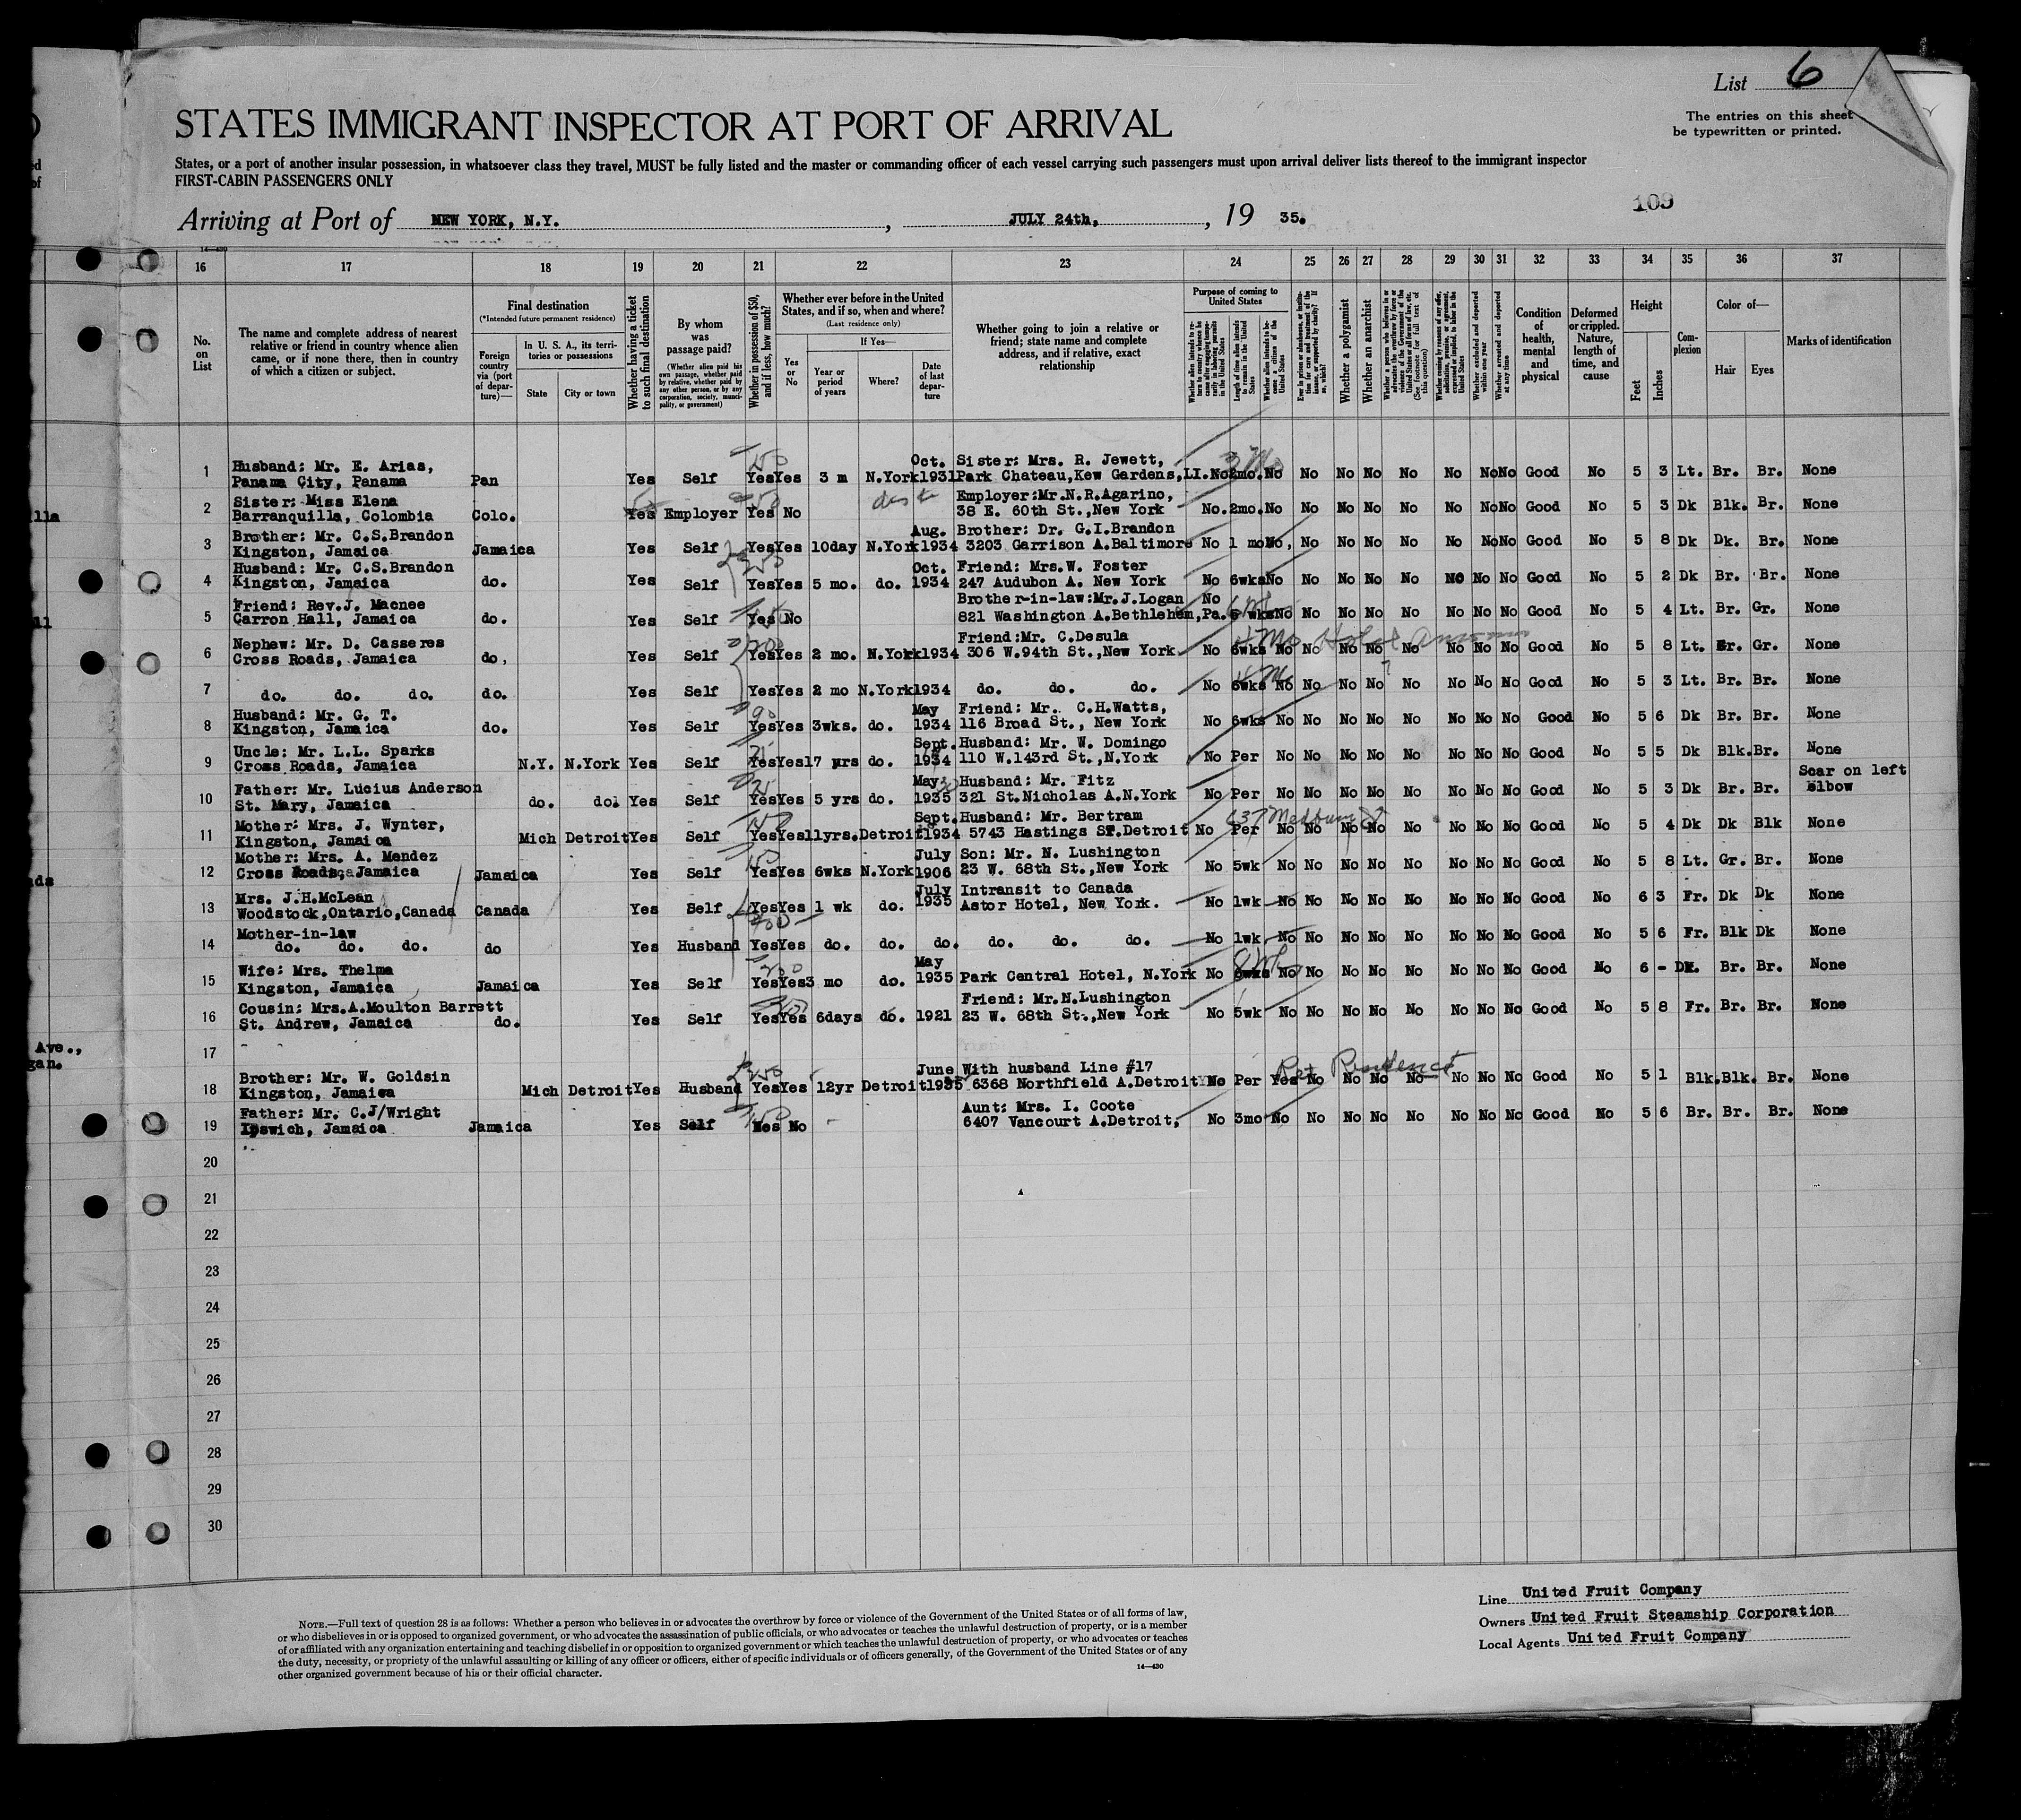 List 6
The entries on this sheet
be typewritten or printed.
STATES IMMIGRANT INSPECTOR AT PORT OF ARRIVAL
States, or a port of another insular possession, in whatsoever class they travel, MUST be fully listed and the master or commanding officer of each vessel carrying such passengers must upon arrival deliver lists thereof to the immigrant inspector
FIRST-CABIN PASSENGERS ONLY
109
Arriving at Port of NEW YORK, N.Y., JULY 24th, , 19 35.
14—430
16 17 18 19 20 21 22 23 24 25 26 27 28 29 30 31 32 33 34 35 36 37
No. on List
The name and complete address of nearest relative or friend in country whence alien came, or if none there, then in country of which a citizen or subject.
Final destination
(*Intended future permanent residence)
Foreign country via (port of departure)—
In U. S. A., its territories or possessions
State
City or town
Whether having a ticket to such final destination
By whom was passage paid?
(Whether alien paid his own passage, whether paid by relative, whether paid by any other person, or by any corporation, society, municipality, or government)
Whether in possession of $50, and if less, how much?
Whether ever before in the United States, and if so, when and where?
(Last residence only)
Yes or No
If Yes—
Year or period of years
Where?
Date of last departure
Whether going to join a relative or friend; state name and complete address, and if relative, exact relationship
Purpose of coming to United States
Length of time alien intends to remain in the United States
Whether alien intends to become a citizen of the United States
Whether a polygamist
Whether an anarchist
Whether excluded and deported within one year
Whether arrested and deported at any time
Condition of health, mental and physical
Deformed or crippled. Nature, length of time, and cause
Height
Feet
Inches
Complexion
Color of—
Hair
Eyes
Marks of identification
Husband: Mr. E. Arias, Oct. Sister: Mrs. R. Jewett,
1 Panama City, Panama Pan Yes Self Yes Yes 3 m N.York 1931 Park Chateau,Kew Gardens,LI. No 2mo. No No No No No No No No Good No 5 3 Lt. Br. Br. None
Sister: Miss Elena Employer:Mr.N.R.Agarino,
2 Barranquilla, Colombia Colo. Yes Employer Yes No 38 E. 60th St.,New York No. 2mo. No No No No No No No No Good No 5 3 Dk Blk. Br. None
Brother: Mr. C.S.Brandon Aug. Brother: Dr. G.I.Brandon
3 Kingston, Jamaica Jamaica Yes Self Yes Yes 10day N.York 1934 3203 Garrison A.Baltimore No 1 mo No, No No No No No No No Good No 5 8 Dk Dk. Br. None
Husband: Mr. C.S.Brandon Oct. Friend: Mrs.W. Foster
4 Kingston, Jamaica do. Yes Self Yes Yes 5 mo. do. 1934 247 Audubon A. New York No 6wks No No No No No NO No No Good No 5 2 Dk Br. Br. None
Friend: Rev.J. Macnee Brother-in-law:Mr.J.Logan No
5 Carron Hall, Jamaica do. Yes Self Yes No 821 Washington A.Bethlehem,Pa. 6 wks No No No No No No No No Good No 5 4 Lt. Br. Gr. None
Nephew: Mr. D. Casseres Friend:Mr. C.Desula
6 Cross Roads, Jamaica do, Yes Self Yes Yes 2 mo. N.York 1934 306 W.94th St.,New York No 6wks No No No No No No No No Good No 5 8 Lt. Gr. Gr. None
7 do. do. do. do. Yes Self Yes Yes 2 mo N.York 1934 do. do. do. No 6wks No No No No No No No No Good No 5 3 Lt. Br. Br. None
Husband: Mr. G. T. May Friend: Mr. C.H.Watts,
8 Kingston, Jamaica do. Yes Self Yes Yes 3wks. do. 1934 116 Broad St., New York No 6wks No No No No No No No No Good No 5 6 Dk Br. Br. None
Uncle: Mr. L.L. Sparks Sept. Husband: Mr. W. Domingo
9 Cross Roads, Jamaica N.Y. N.York Yes Self Yes Yes 17 yrs do. 1934 110 W.143rd St.,N.York No Per No No No No No No No No Good No 5 5 Dk Blk. Br. None
Father: Mr. Lucius Anderson May Husband: Mr. Fitz Scar on left
10 St. Mary, Jamaica do. do. Yes Self Yes Yes 5 yrs do. 1935 321 St.Nicholas A.N.York No Per No No No No No No No No Good No 5 3 Dk Br. Br. Elbow
Mother: Mrs. J. Wynter, Sept. Husband: Mr. Bertram
11 Kingston, Jamaica Mich Detroit Yes Self Yes Yes 11yrs. Detroit 1934 5743 Hastings ST.Detroit No Per No No No No No No No No Good No 5 4 Dk Dk Blk None
Mother: Mrs. A. Mendez July Son: Mr. N. Lushington
12 Cross Roads, Jamaica Jamaica Yes Self Yes Yes 6wks N.York 1906 23 W. 68th St.,New York No 5wk No No No No No No No No Good No 5 8 Lt. Gr. Br. None
Mrs. J.H.McLean July Intransit to Canada
13 Woodstock,Ontario,Canada Canada Yes Self Yes Yes 1 wk do. 1935 Astor Hotel, New York. No 1wk No No No No No No No No Good No 6 3 Fr. Dk Dk None
Mother-in-law
14 do. do. do. do Yes Husband Yes Yes do. do. do. do. do. do. No 1wk No No No No No No No No Good No 5 6 Fr. Blk Dk None
Wife: Mrs. Thelma May
15 Kingston, Jamaica Jamaica Yes Self Yes Yes 3 mo do. 1935 Park Central Hotel, N.York No 8wks No No No No No No No No Good No 6 - DK. Br. Br. None
Cousin: Mrs.A.Moulton Barrett Friend: Mr.N.Lushington
16 St. Andrew, Jamaica do. Yes Self Yes Yes 6days do. 1921 23 W. 68th St.,New York No 5wk No No No No No No No No Good No 5 8 Fr. Br. Br. None
17
Brother: Mr. W. Goldsin June With husband Line #17 Ret Residence
18 Kingston, Jamaica Mich Detroit Yes Husband Yes Yes 12yr Detroit 1935 6368 Northfield A.Detroit No Per Yes No No No No No No No Good No 5 1 Blk. Blk. Br. None
Father: Mr. C.J/Wright Aunt: Mrs. I. Coote
19 Ipswich, Jamaica Jamaica Yes Self Yes No - 6407 Vancourt A.Detroit, No 3mo No No No No No No No No Good No 5 6 Br. Br. Br. None
20
21
22
23
24
25
26
27
28
29
30
NOTE.—Full text of question 28 is as follows: Whether a person who believes in or advocates the overthrow by force or violence of the Government of the United States or of all forms of law,
or who disbelieves in or is opposed to organized government, or who advocates the assassination of public officials, or who advocates or teaches the unlawful destruction of property, or is a member
of or affiliated with any organization entertaining and teaching disbelief in or opposition to organized government or which teaches the unlawful destruction of property, or who advocates or teaches
the duty, necessity, or propriety of the unlawful assaulting or killing of any officer or officers, either of specific individuals or of officers generally, of the Government of the United States or of any
other organized government because of his or their official character.
14—430
Line United Fruit Company
Owners United Fruit Steamship Corporation
Local Agents United Fruit Company